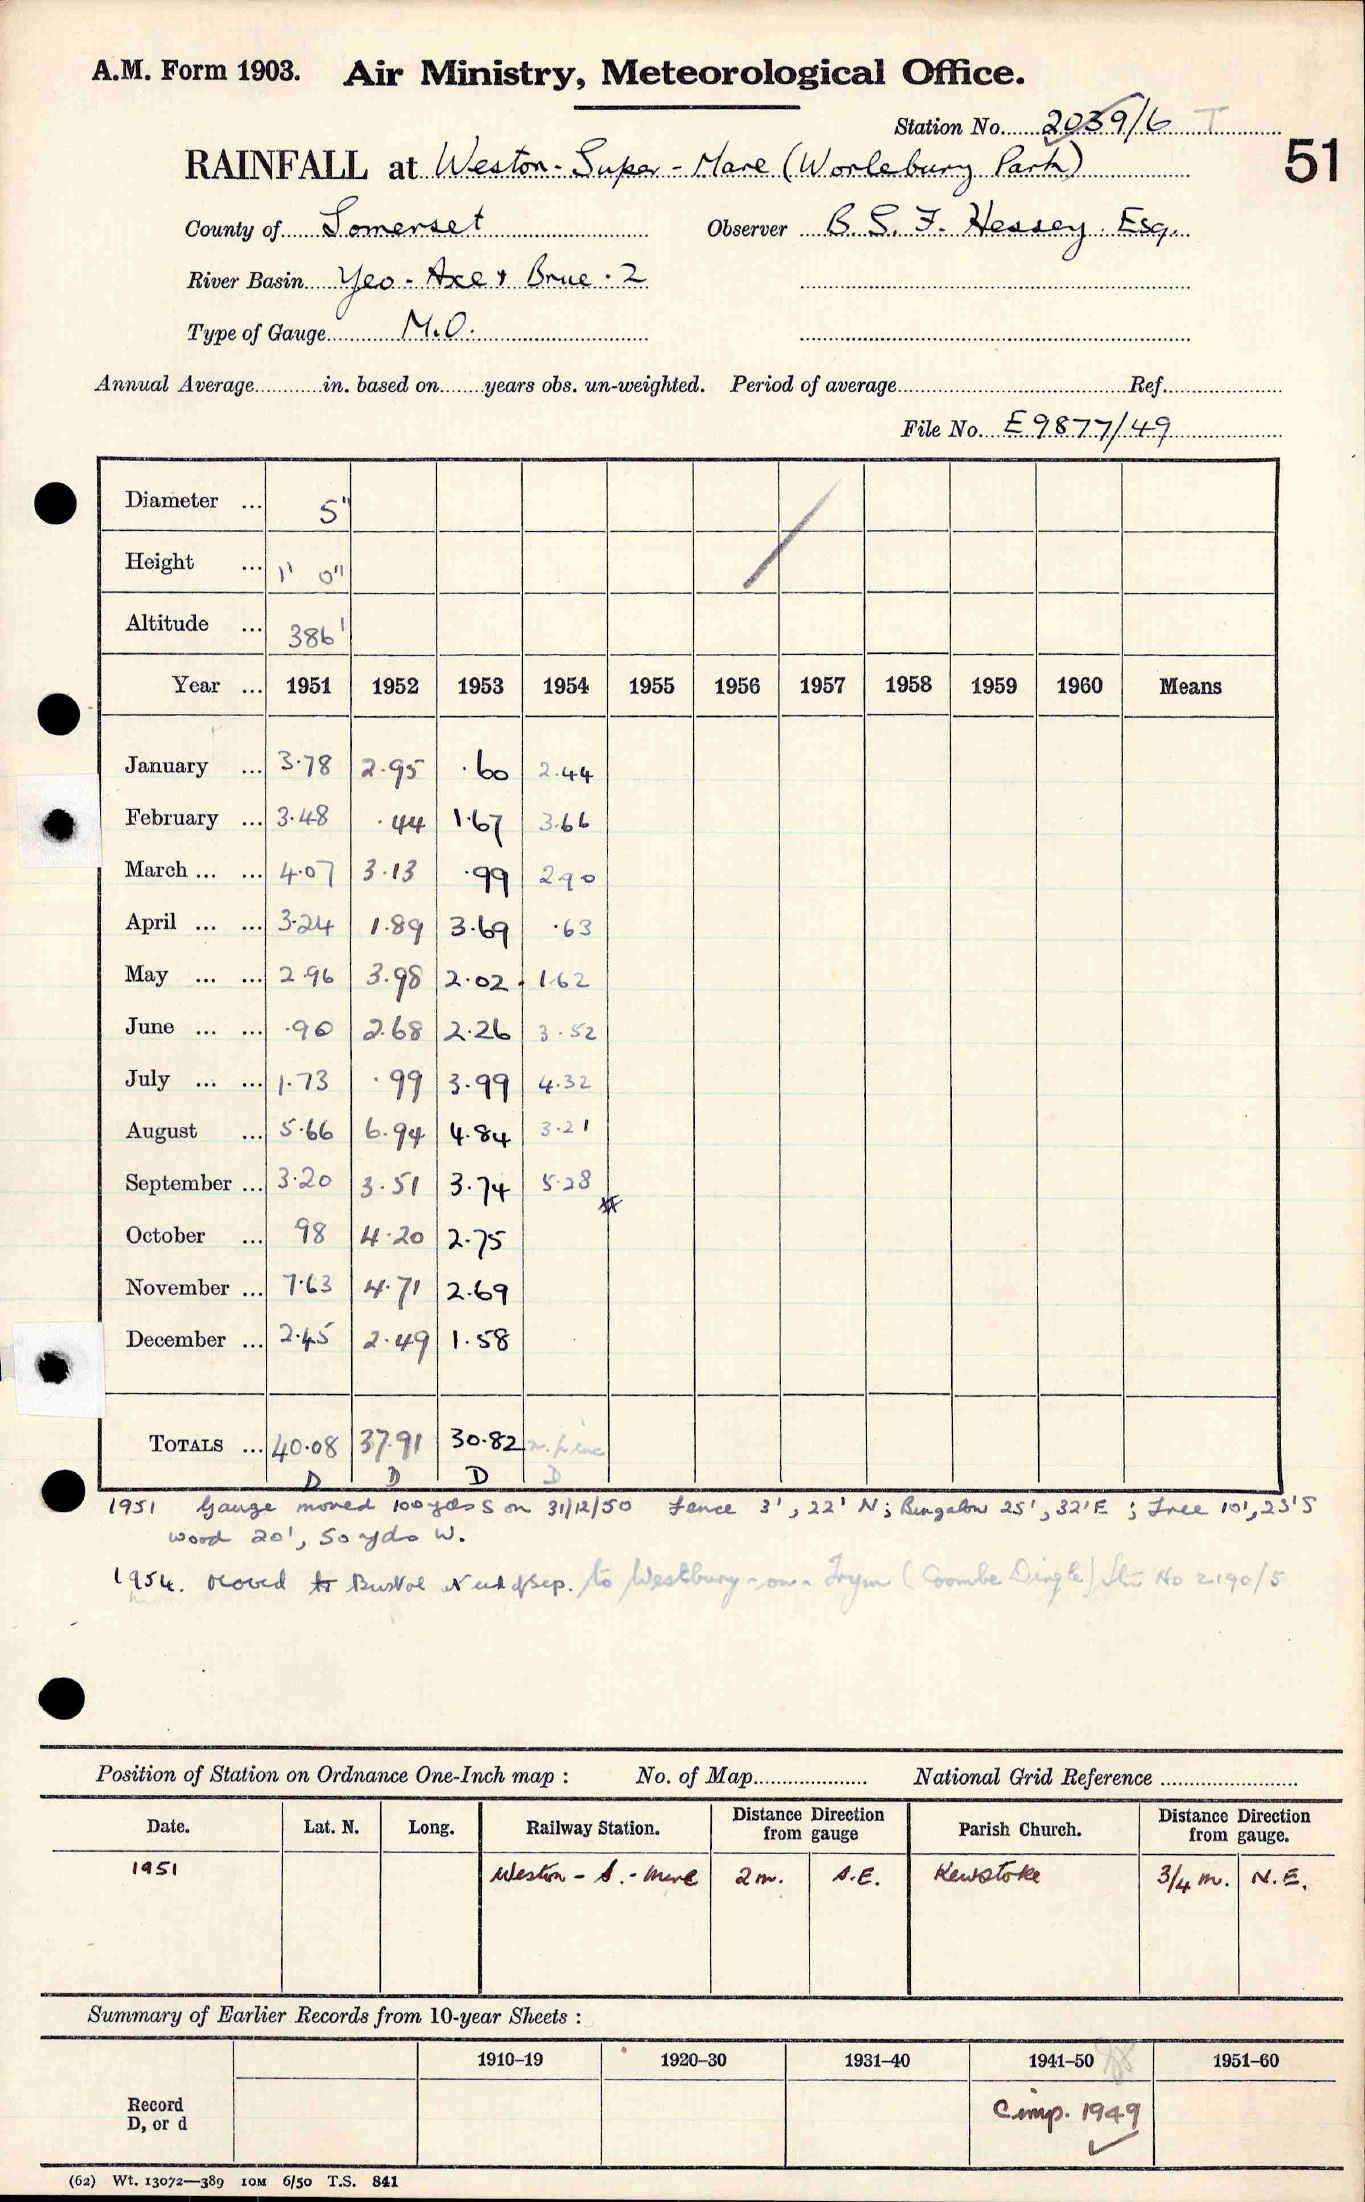 A.M. Form 1903. Air Ministry, Meteorological Office.
Station No. 2039/6 T
51
RAINFALL at Weston-Super-Mare (Worlebury Park)
County of Somerset Observer B. S. F. Hessey Esq.
River Basin Yeo - Axe & Brue . 2
Type of Gauge M.O.
Annual Average in. based on years obs. un-weighted. Period of average Ref.
File No. E9877/49
Diameter ... 5"
Height ... 1' 0"
Altitude ... 386'
Year ... 1951 1952 1953 1954 1955 1956 1957 1958 1959 1960 Means
January ... 3.78 2.95 .60 2.44
February ... 3.48 .44 1.67 3.66
March ... ... 4.07 3.13 .99 2.90
April ... ... 3.24 1.89 3.69 .63
May ... ... 2.96 3.98 2.02 1.62
June ... ... .90 2.68 2.26 3.52
July ... ... 1.73 .99 3.99 4.32
August ... 5.66 6.94 4.84 3.21
September ... 3.20 3.51 3.74 5.28
October ... 98 4.20 2.75
November ... 7.63 4.71 2.69
December ... 2.45 2.49 1.58
TOTALS ... 40.08 37.91 30.82
D D D D
1951 Gauge moved 100 yds S on 31/12/50 Fence 3', 22' N; Bungalow 25', 32' E; Tree 10', 23' S
wood 20', 50 yds W.
1954. Moved to Bristol end of Sep. to Westbury-on-Trym (Coombe Dingle) Stn No 2190/5
Position of Station on Ordnance One-Inch map : No. of Map National Grid Reference
Date. Lat. N. Long. Railway Station. Distance Direction from gauge Parish Church. Distance Direction from gauge.
1951 Weston - S. - Mare 2 m. S.E. Kewstoke 3/4 m. N.E.
Summary of Earlier Records from 10-year Sheets :
1910–19 1920–30 1931–40 1941–50 1951–60
Record D, or d Comp. 1949
(62) Wt. 13072—389 10M 6/50 T.S. 841